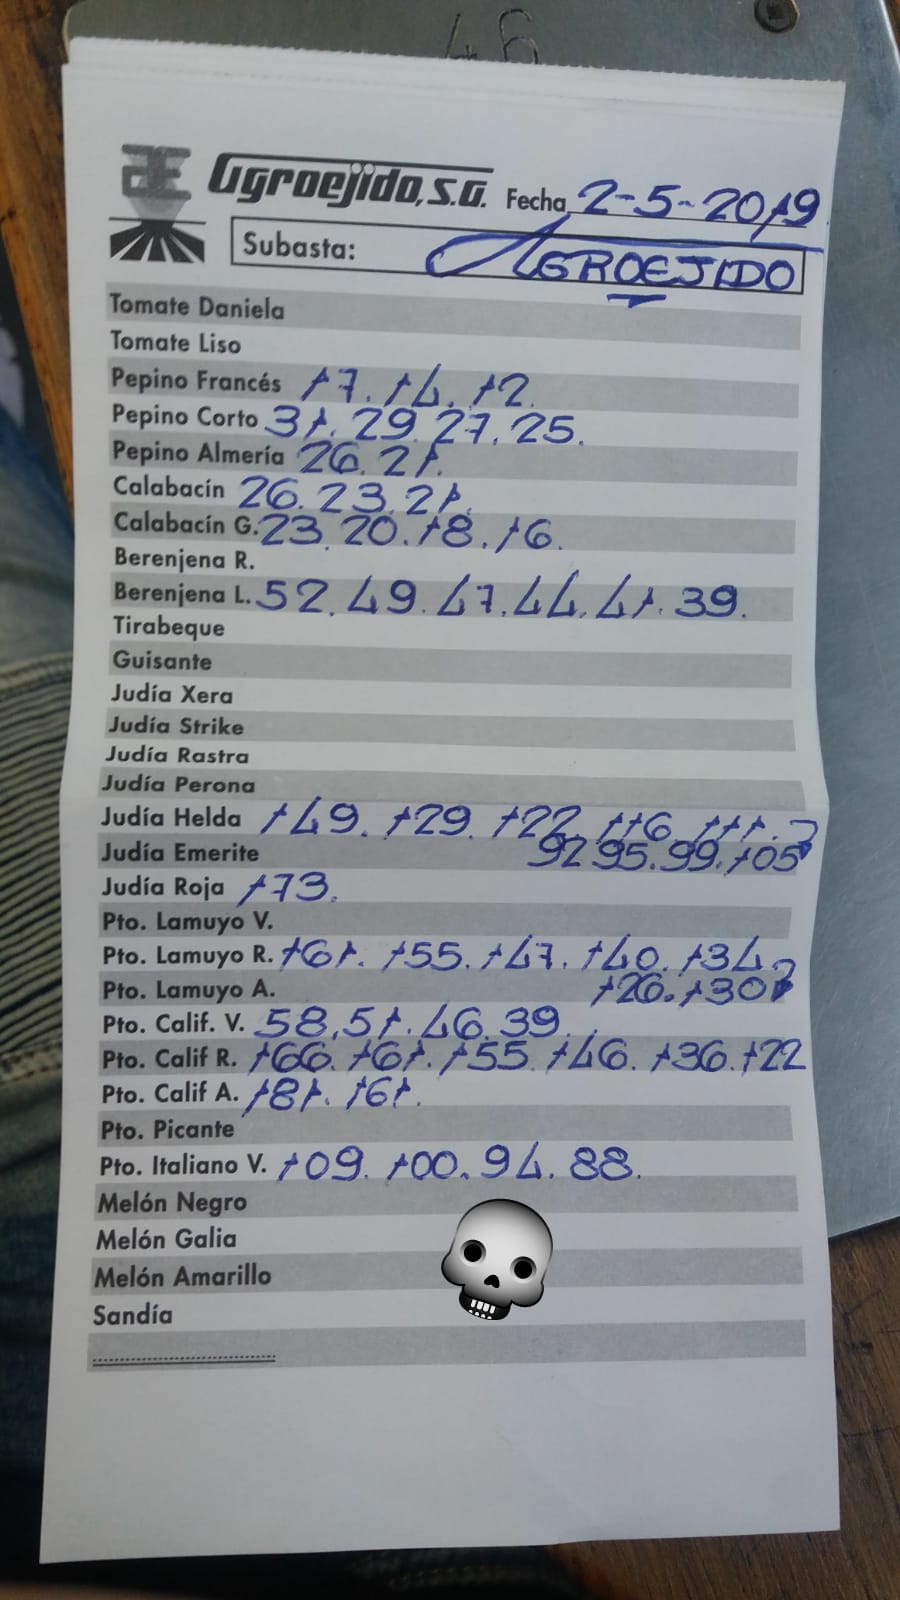 46
Agroejido, S.A. Fecha 2-5-2019
Subasta: AGROEJIDO
Tomate Daniela
Tomate Liso
Pepino Francés 17. 14. 12.
Pepino Corto 31. 29. 27. 25.
Pepino Almería 26. 21.
Calabacín 26. 23. 21.
Calabacín G. 23. 20. 18. 16.
Berenjena R.
Berenjena L. 52. 49. 47. 44. 41. 39.
Tirabeque
Guisante
Judía Xera
Judía Strike
Judía Rastra
Judía Perona
Judía Helda 149. 129. 122. 116. 111.
Judía Emerite 92 95. 99. 105
Judía Roja 173.
Pto. Lamuyo V.
Pto. Lamuyo R. 161. 155. 147. 140. 134
Pto. Lamuyo A. 126. 130
Pto. Calif. V. 58. 51. 46. 39
Pto. Calif R. 166. 161. 155. 146. 136. 122
Pto. Calif A. 181. 161.
Pto. Picante
Pto. Italiano V. 109. 100. 94. 88.
Melón Negro
Melón Galia
Melón Amarillo
Sandía